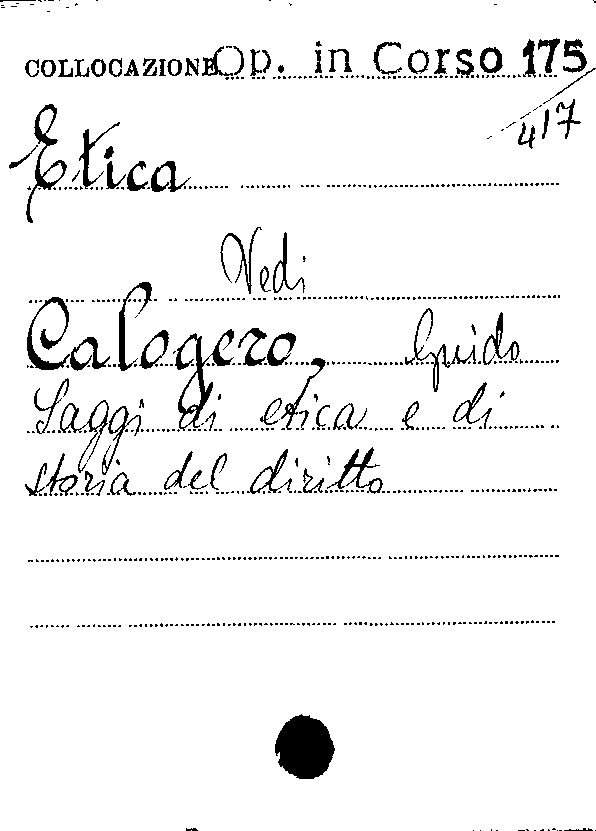 COLLOCAZIONE Op. in Corso 175
417
Etica
Vedi
Calogero, Guido
Saggi di etica e di
storia del diritto